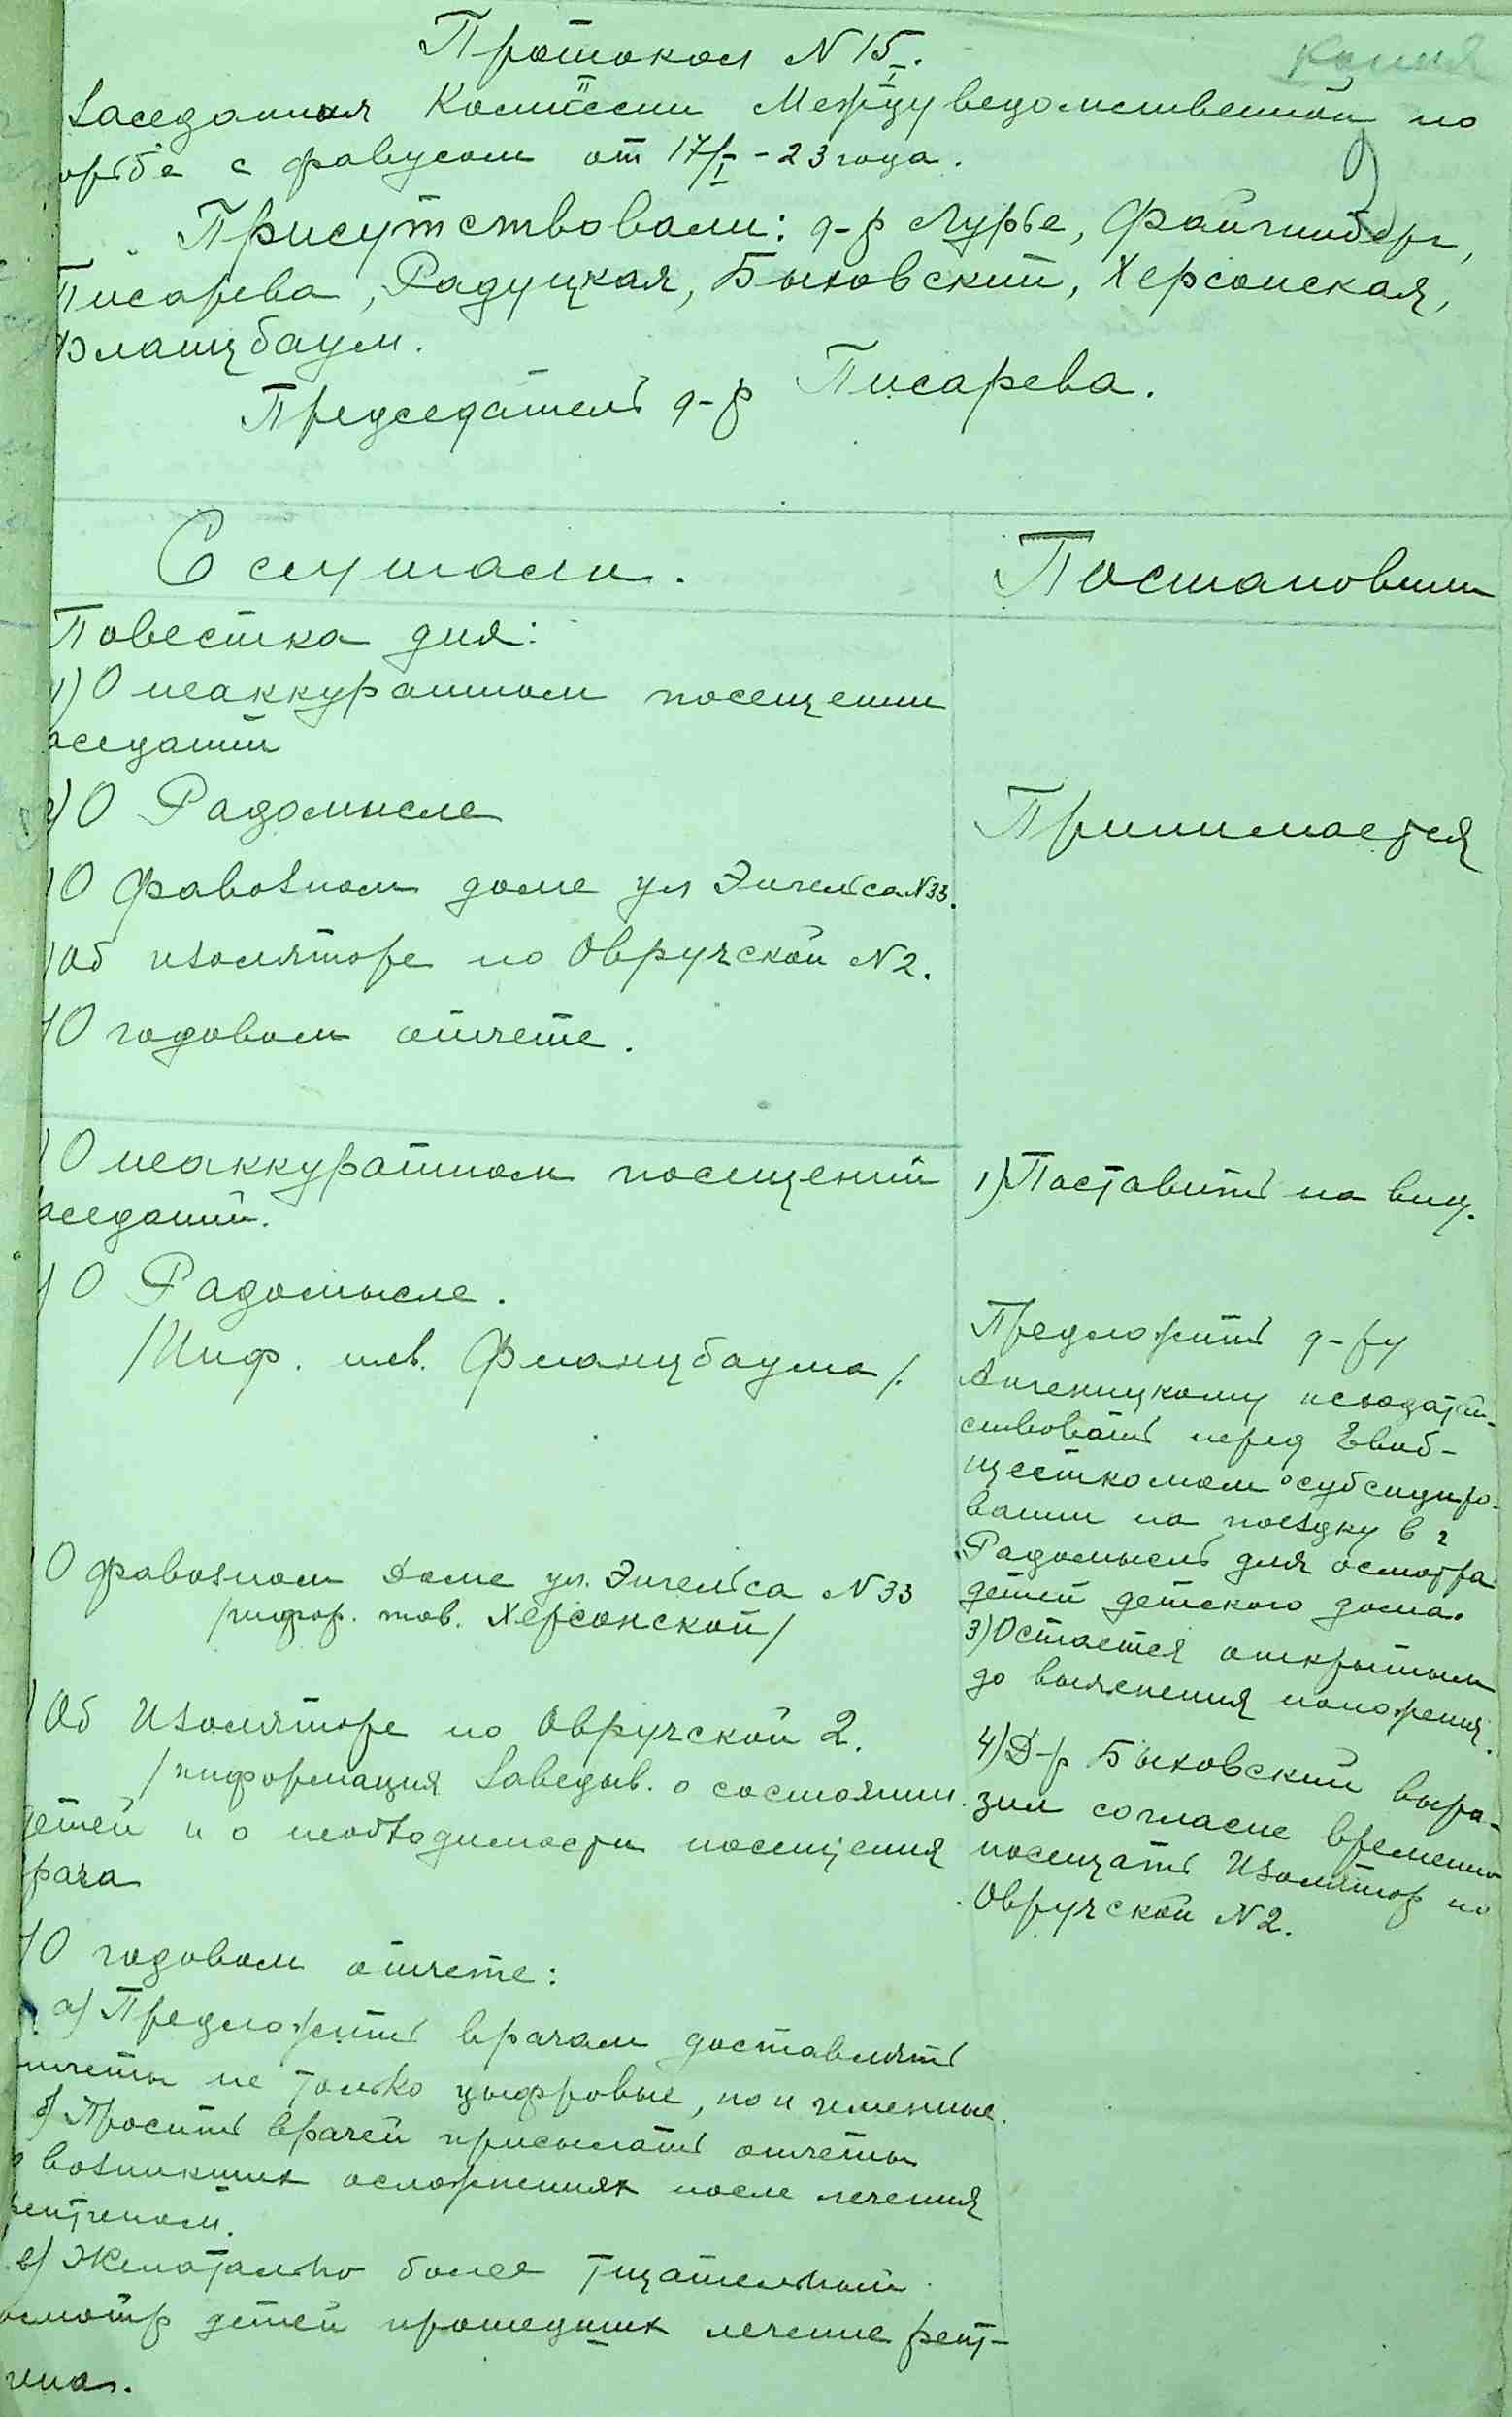 копия
Протокол N 15.
Заседания Комиссии Междуведомственной по
орьбе с фавусом от 17/I - 23 года.
Присутствовали: д-р Лурье, Файнинберг,
Писарева, Радуцкая, Быховский, Херсонская,
Фланцбаум.
Председатель д-р Писарева.
Слушали.
Постановили
Повестка дня:
1) О неаккуратном посещении
аседаний
2) О Радомысле
Принимается
) О Фавозном доме ул Энгельса N 33.
) Об изоляторе по Овручской N 2.
) О годовом отчете.
) О неаккуратном посещений
аседаний.
1) Поставить на вид.
) О Радомысле.
/Инф. тов. Фланцбаума/.
Предложить д-ру
исходатай-
ствовать перед Евоб-
щесткомом о субсидиро-
вании на поездку в г
Радомысль для осмотра
детей детского дома.
О фавозном Доме ул. Энгельса N 33
/инфор. тов. Херсонской/
3) Остается открытым
до выяснения положения.
) Об Изоляторе по Овручской 2.
/информация Заведыв. о состоянии
детей и о необходимости посещения
рача
4) Д-р Быховский выра-
зил согласие временно
посещать Изолятор по
Овручской N 2.
) О годовом отчете:
а) Предложить врачам доставлять
отчеты не только цыфровые, но и именные.
б) Просить врачей присылать отчеты
о возникших осложнениях после лечения
рентгеном.
в) Желательно более тщательный
осмотр детей прошедших лечение рент-
гена.